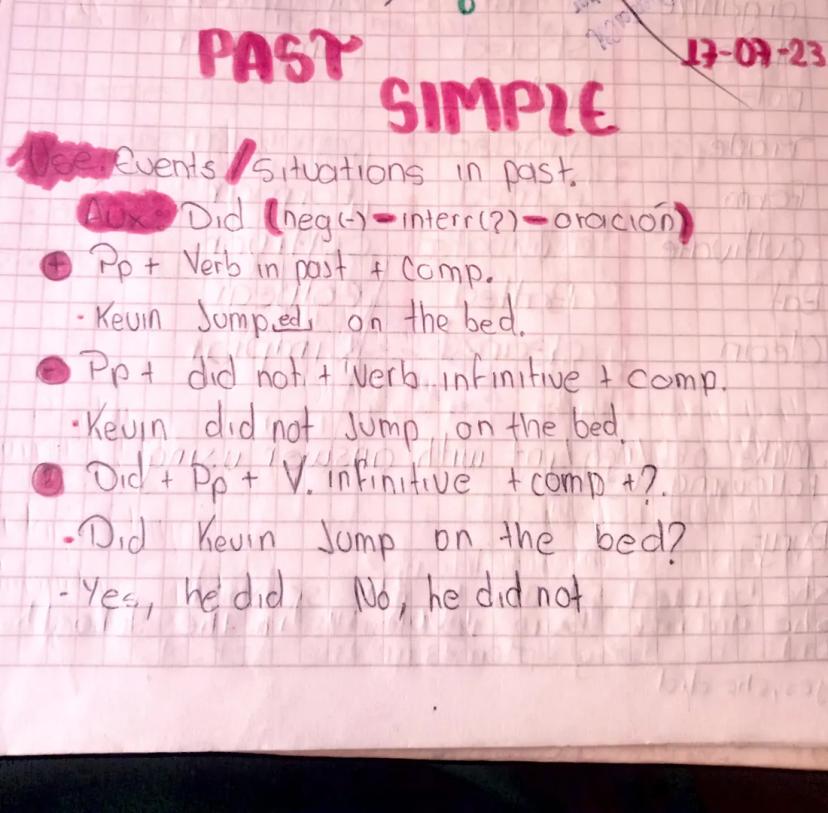 17-07-23
PAST
SIMPLE
Use: Events/Situations in past.
Aux: Did (neg(-)-interr(?)-oración)
+ Pp + Verb in past + comp.
• Kevin Jumped on the bed.
- Pp + did not + Verb infinitive + comp.
• Kevin did not Jump on the bed.
? Did + Pp + V. infinitive + comp +?.
• Did Kevin Jump on the bed?
- Yes, he did. No, he did not